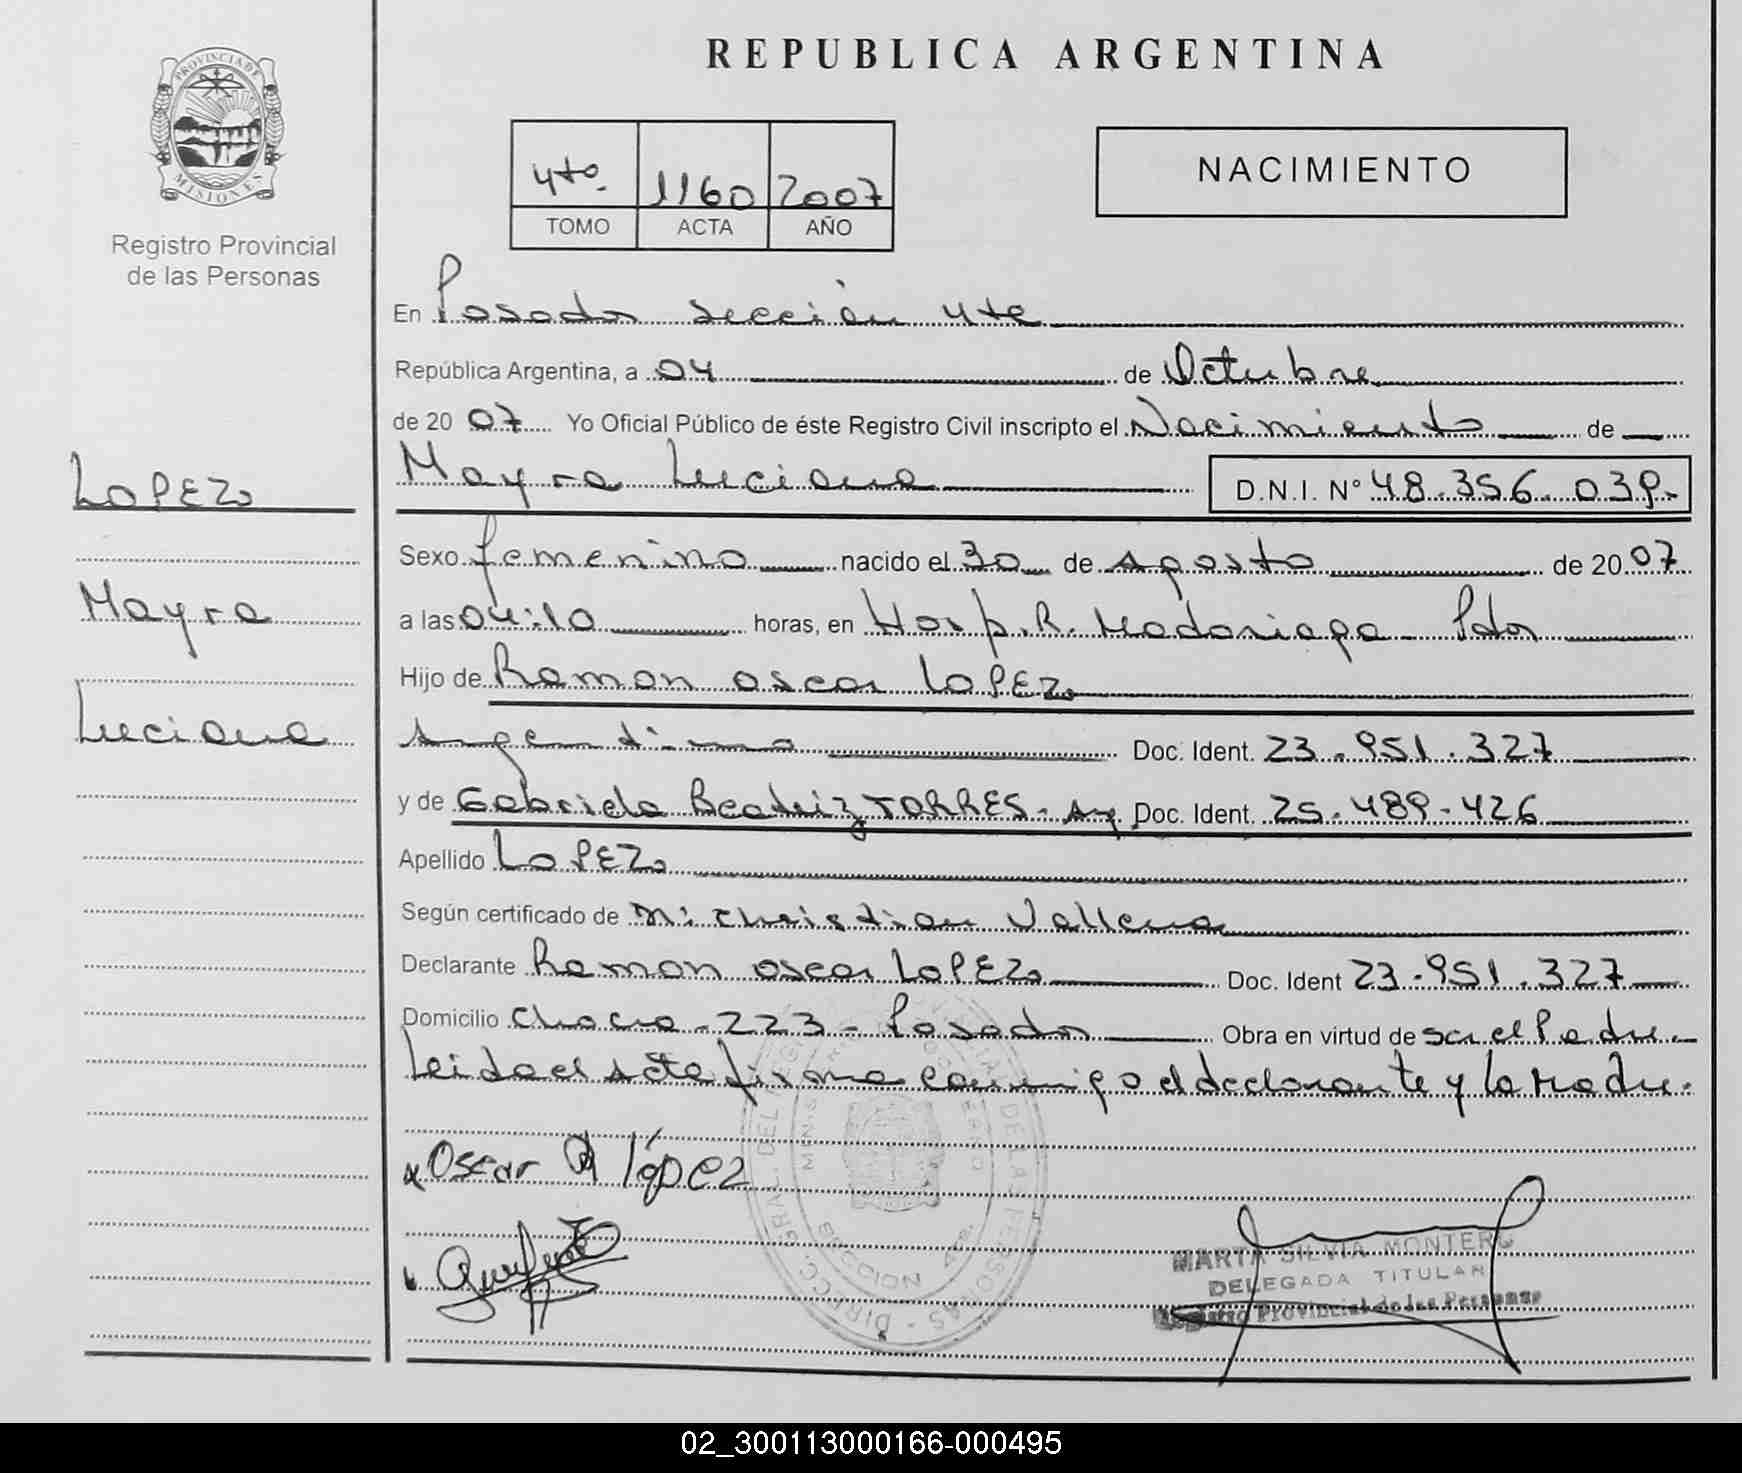 REPUBLICA ARGENTINA
PROVINCIA DE
MISIONES
Registro Provincial
de las Personas
4to. 1160 2007
TOMO ACTA AÑO
NACIMIENTO
En Posadas sección 4ta
República Argentina, a 04 de Octubre
de 2007 Yo Oficial Público de éste Registro Civil inscripto el Nacimiento de
Mayra Luciana D.N.I. N° 48.356.039.-
LOPEZ
Mayra
Luciana
Sexo femenino nacido el 30 de Agosto de 2007
a las 04:10 horas, en Hosp. R. Madariaga - Pdas
Hijo de Ramon oscar LOPEZ
Argentino Doc. Ident. 23.951.327
y de Gabriela Beatriz TORRES - Arg. Doc. Ident. 25.489.426
Apellido LOPEZ
Según certificado de Christian
Declarante Ramon oscar LOPEZ Doc. Ident 23.951.327
Domicilio Chaco - 223 - Posadas Obra en virtud de ser el Padre.-
Leida el Acta firma conmigo el declarante y la Madre.
x Oscar R López
MARTA SILVIA MONTERO
DELEGADA TITULAR
Registro Provincial de las Personas
02_300113000166-000495